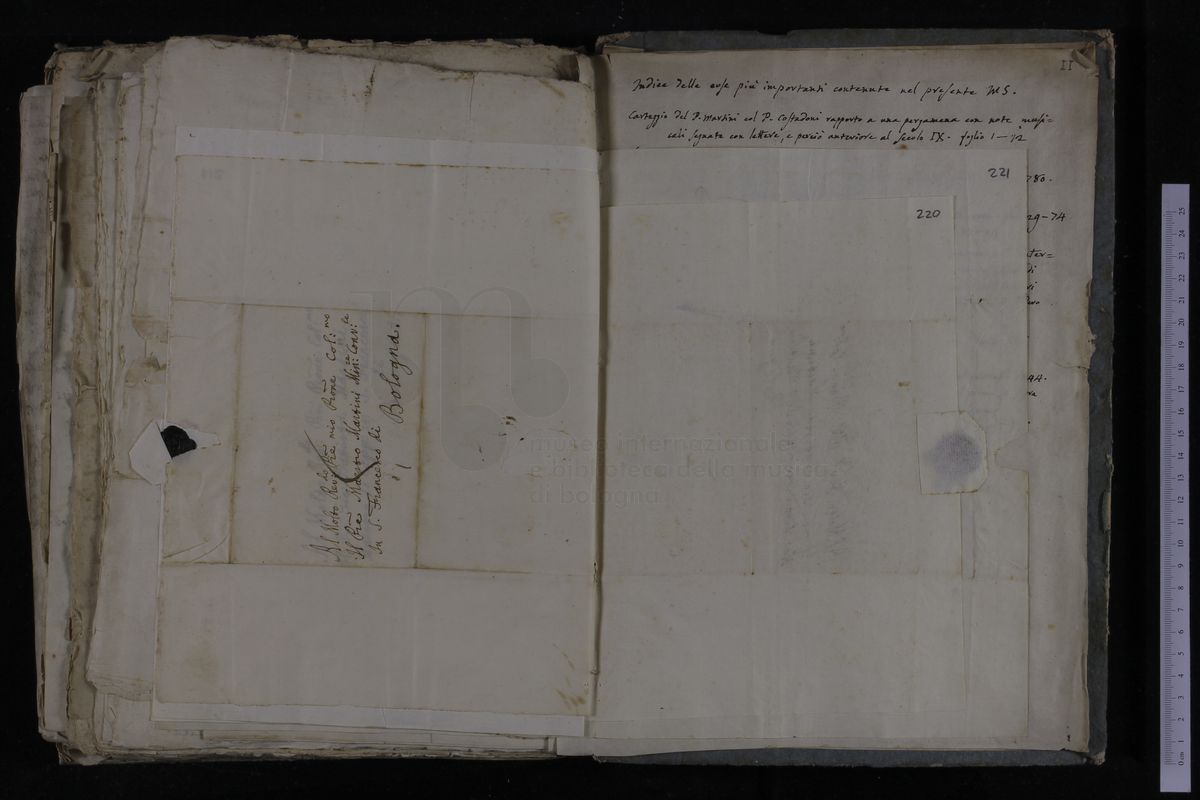 Al Molto Rev.do Pre mio Prone Col:mo
Il Pre Maestro Martini Min:re Conv:le
In S. Francesco di
Bologna.
II
Indice delle cose più importanti contenute nel presente MS.
Carteggio del P. Martini col P. Costadoni rapporto a una pergamena con note musi=
cali segnate con lettere, e perciò anteriore al secolo IX. foglio 1–72
221
780.
220
29–74
ter=
di
vi
44.
museo internazionale
e biblioteca della musica
di bologna
0 cm 1 2 3 4 5 6 7 8 9 10 11 12 13 14 15 16 17 18 19 20 21 22 23 24 25